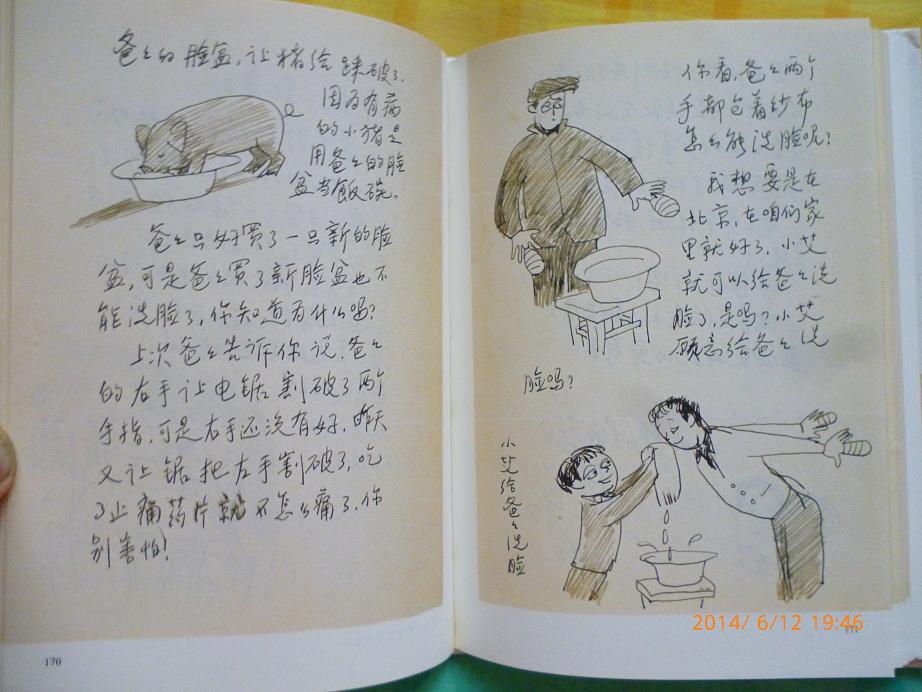 爸爸的脸盆，让猪给踩破了。
因为有病
的小猪是
用爸爸的脸
盆当飯碗。
爸爸只好買了一只新的脸
盆，可是爸爸買了新脸盆也不
能洗脸了，你知道为什么吗？
上次爸爸告诉你说，爸爸
的右手让电锯割破了两个
手指，可是右手还没有好，昨天
又让锯把左手割破了，吃
了止痛药片就不怎么痛了，你
别害怕！
170
你看，爸爸两个
手都包着纱布
怎么能洗脸呢？
我想要是在
北京，在咱们家
里就好了，小艾
就可以给爸爸洗
脸了，是吗？小艾
願意给爸爸洗
脸吗？
小艾给爸爸洗脸
2014/ 6/12 19:46